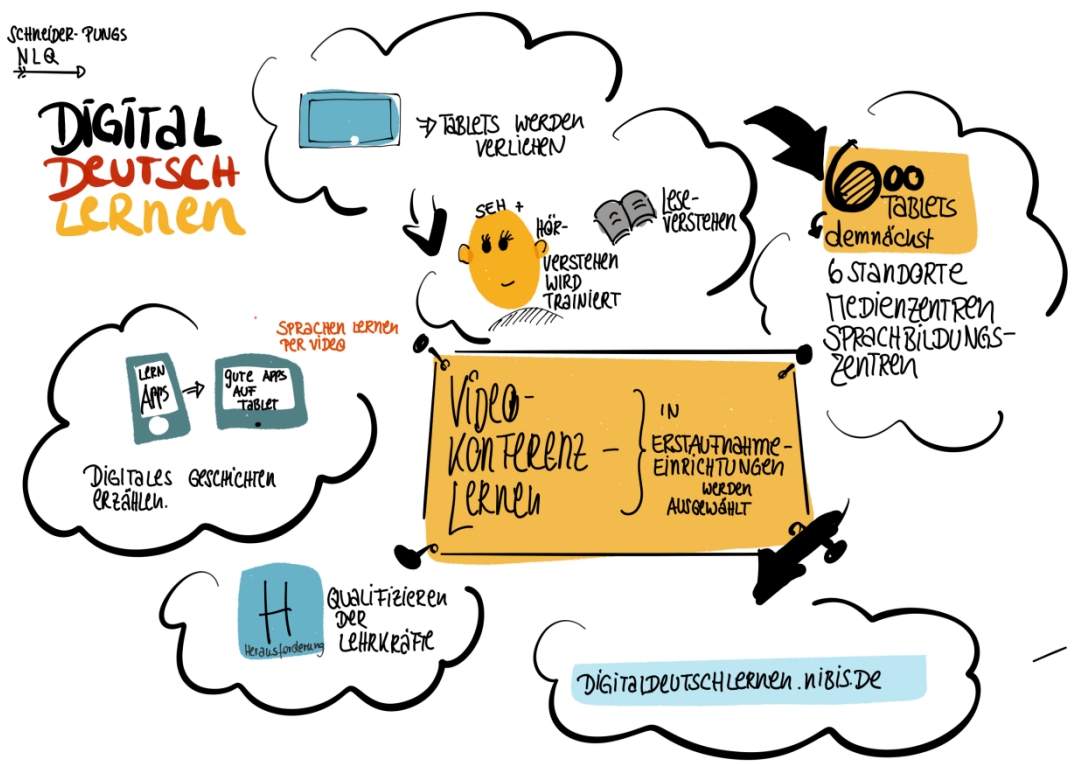 SCHNEIDER-PUNGS
NLQ
DIGITAL
DEUTSCH
LERNEN
TABLETS WERDEN
VERLIEHEN
SEH +
HÖR-
VERSTEHEN
WIRD
TRAINIERT
LESE-
VERSTEHEN
600
TABLETS
demnächst
6 STANDORTE
MEDIENZENTREN
SPRACHBILDUNGS-
ZENTREN
SPRACHEN LERNEN
PER VIDEO
LERN
APPS
GUTE APPS
AUF
TABLET
DIGITALES GESCHICHTEN
ERZÄHLEN.
VIDEO-
KONFERENZ –
LERNEN
IN
ERSTAUFNAHME-
EINRICHTUNGEN
WERDEN
AUSGEWÄHLT
H
Herausforderung
QUALIFIZIEREN
DER
LEHRKRÄFTE
DIGITALDEUTSCHLERNEN.NIBIS.DE